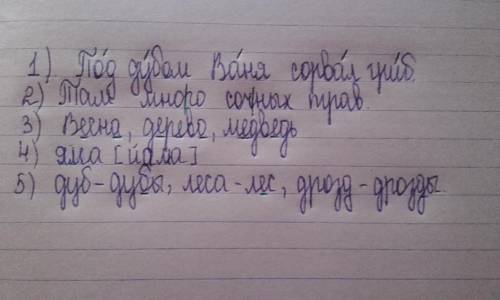 1) По́д ду́бом Ва́ня сорва́л гри́б.
2) Там много сочных трав.
3) Весна, дерево, медведь
4) яма [йама]
5) дуб-дубы, леса-лес, дрозд-дрозды.